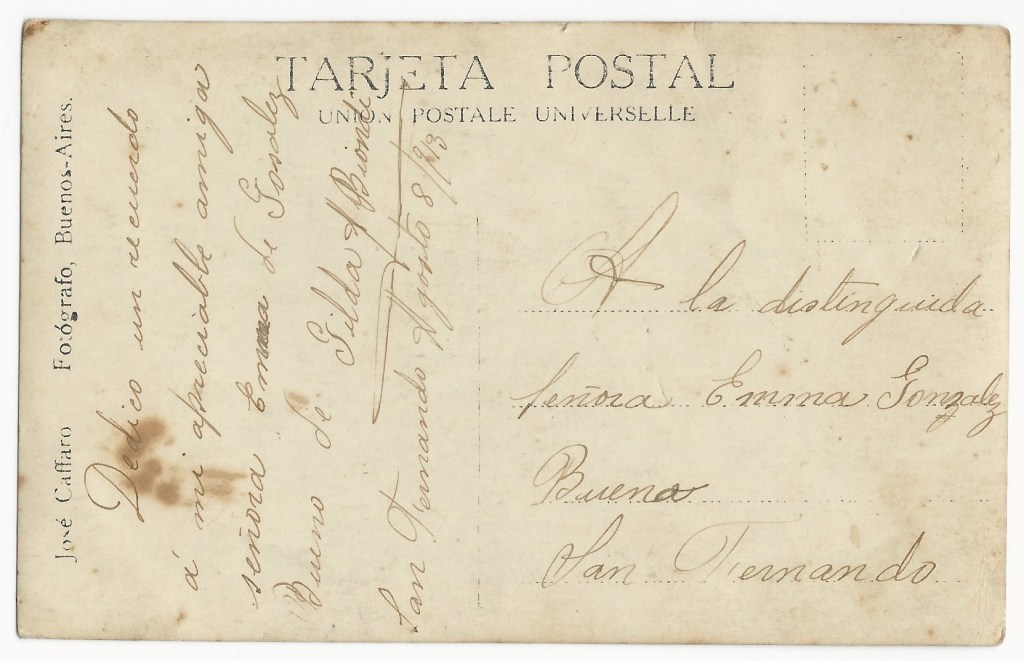 TARJETA POSTAL
UNION POSTALE UNIVERSELLE
José Caffaro Fotógrafo, Buenos-Aires.
Dedico un recuerdo
á mi apreciable amiga
señora Emma de Gosalez
Bueno de
Gilda A Bionde
San Fernando Agosto 8/913
A la distinguida
señora Emma Gonzalez
Bueno
San Fernando